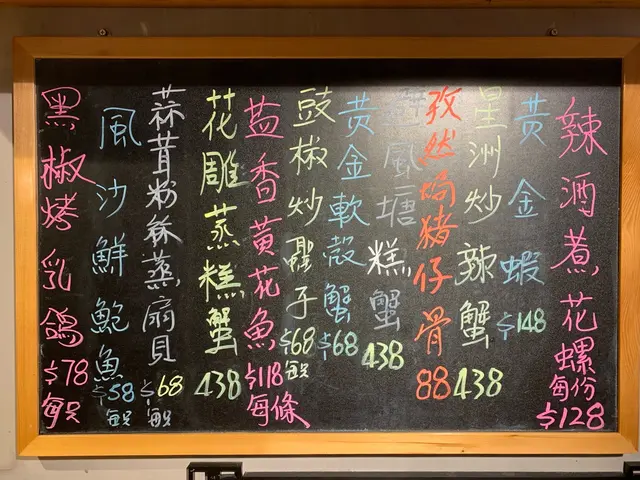 辣酒煮花螺
每份
$128
黄金蝦
$148
星洲炒辣蟹
438
孜然焗豬仔骨
88
風塘糕蟹
438
黄金軟殼蟹
$68
豉椒炒蟶子
$68
每只
盐香黃花魚
$118
每條
花雕蒸糕蟹
438
蒜茸粉絲蒸扇貝
$68
每只
風沙鮮鮑魚
$58
每只
黑椒烤乳鴿
$78
每只